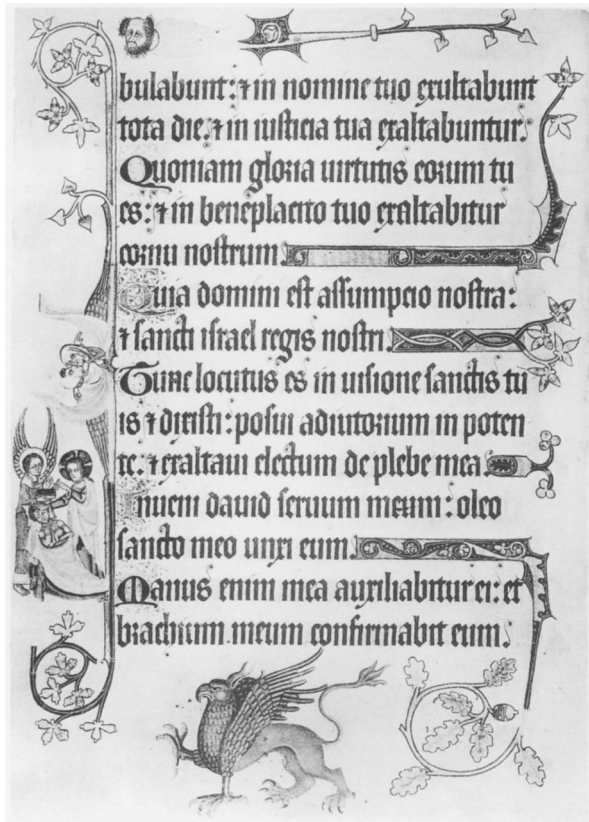 bulabunt: ⁊ in nomine tuo exultabunt
tota die. ⁊ in iusticia tua exaltabuntur.
Quoniam gloria uirtutis eorum tu
es: ⁊ in beneplacito tuo exaltabitur
cornu nostrum.
Quia domini est assumpcio nostra:
⁊ sancti israel regis nostri.
Tunc locutus es in uisione sanctis tu
is ⁊ dixisti: posui adiutorium in poten
te. ⁊ exaltaui electum de plebe mea.
Inueni dauid seruum meum: oleo
sancto meo unxi eum.
Manus enim mea auxiliabitur ei: et
brachium meum confirmabit eum.